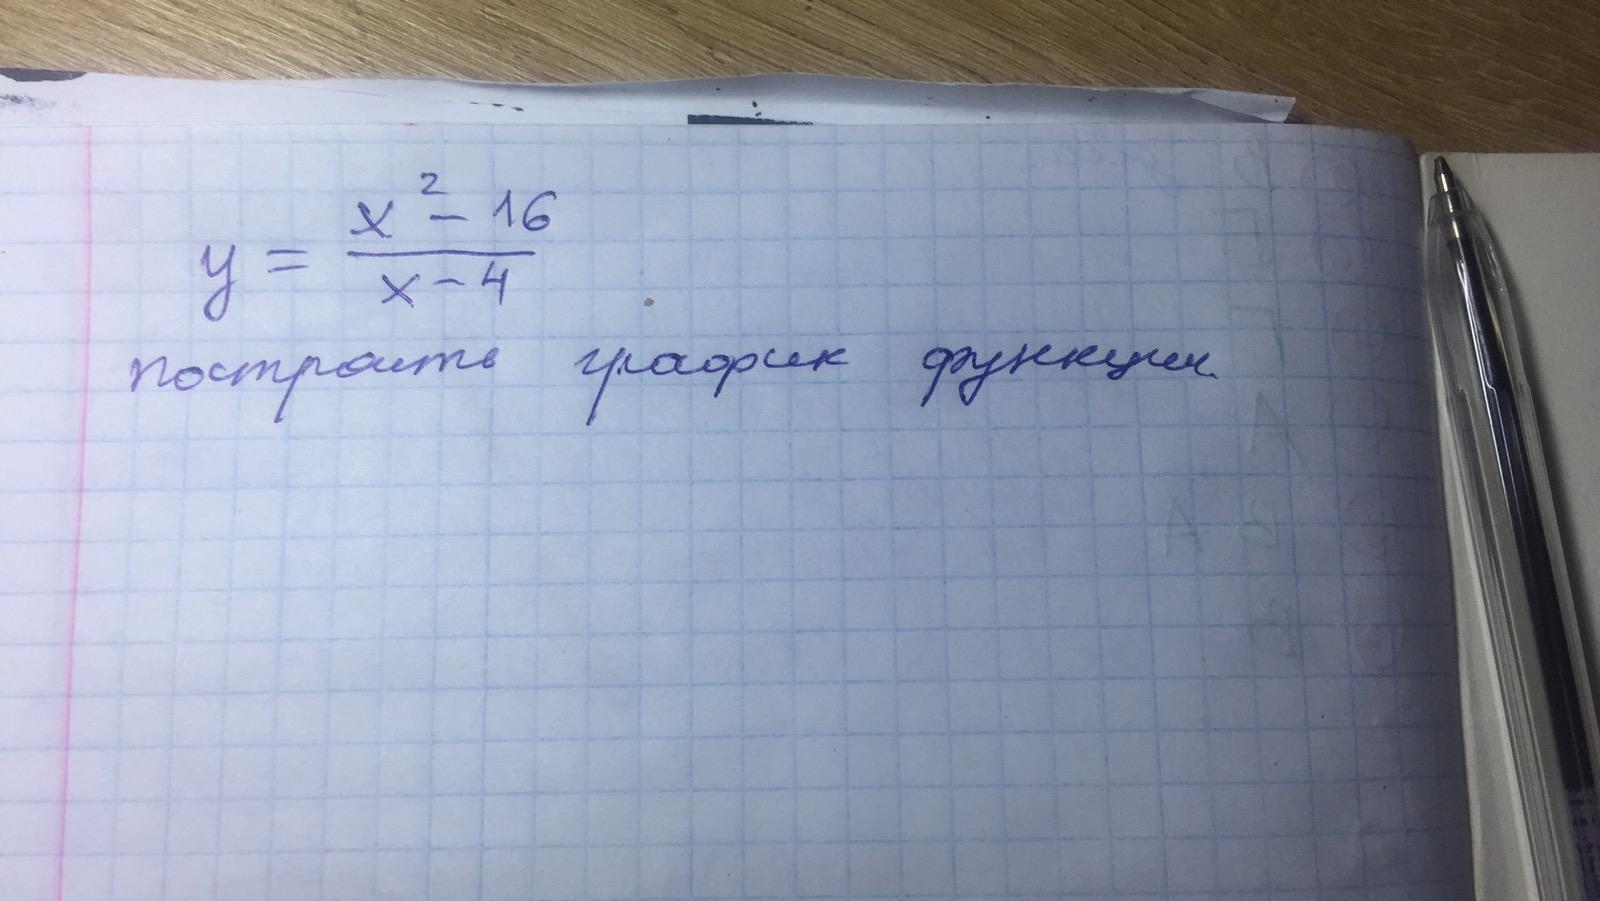 y = \frac{x^2 - 16}{x - 4}
построить график функции.